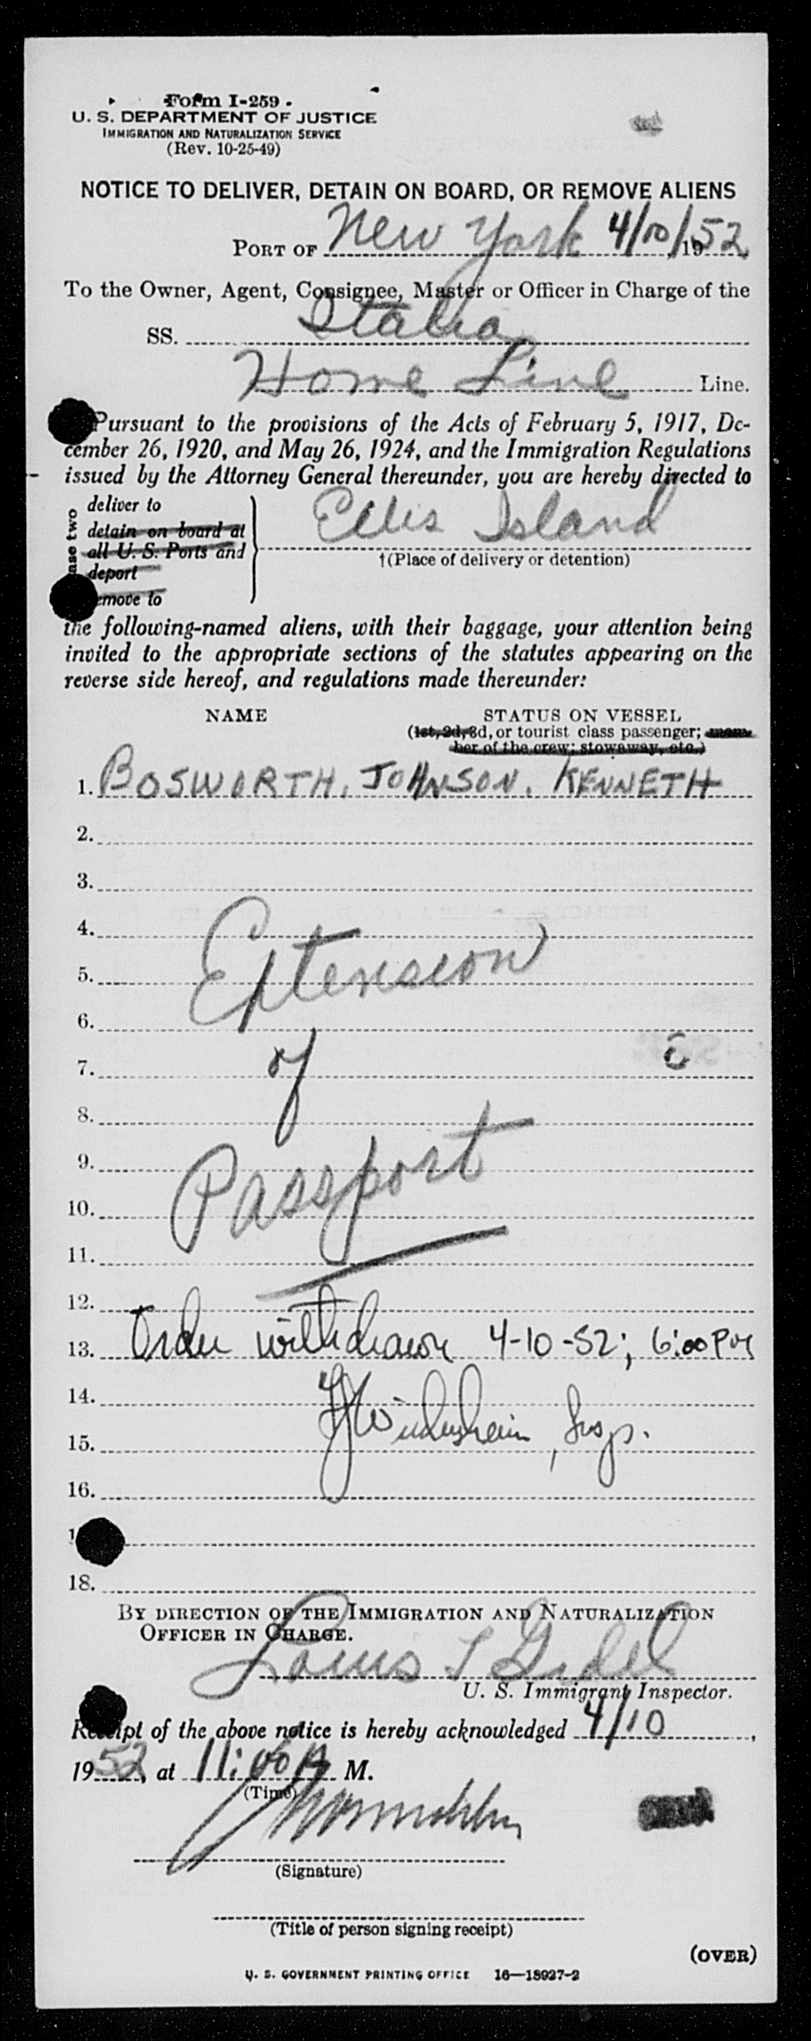 Form I-259
U. S. DEPARTMENT OF JUSTICE
IMMIGRATION AND NATURALIZATION SERVICE
(Rev. 10-25-49)
NOTICE TO DELIVER, DETAIN ON BOARD, OR REMOVE ALIENS
PORT OF New York 4/10/1952
To the Owner, Agent, Consignee, Master or Officer in Charge of the
SS. Italia
Home Line Line.
Pursuant to the provisions of the Acts of February 5, 1917, De-
cember 26, 1920, and May 26, 1924, and the Immigration Regulations
issued by the Attorney General thereunder, you are hereby directed to
deliver to
detain on board at
all U. S. Ports and
deport
remove to
Ellis Island
†(Place of delivery or detention)
the following-named aliens, with their baggage, your attention being
invited to the appropriate sections of the statutes appearing on the
reverse side hereof, and regulations made thereunder:
NAME STATUS ON VESSEL
(1st, 2d, 3d, or tourist class passenger; mem-
ber of the crew; stowaway, etc.)
1. BOSWORTH, JOHNSON, KENNETH
2.
3.
4.
5. Extension
6.
7. of
8.
9.
10. Passport
11.
12.
13. Order withdrawn 4-10-52; 6:00 PM
14.
15. Insp.
16.
18.
BY DIRECTION OF THE IMMIGRATION AND NATURALIZATION
OFFICER IN CHARGE.
Louis
U. S. Immigrant Inspector.
Receipt of the above notice is hereby acknowledged 4/10,
1952, at 11:00 A M.
(Time)
(Signature)
(Title of person signing receipt)
(OVER)
U. S. GOVERNMENT PRINTING OFFICE 16—18927-2